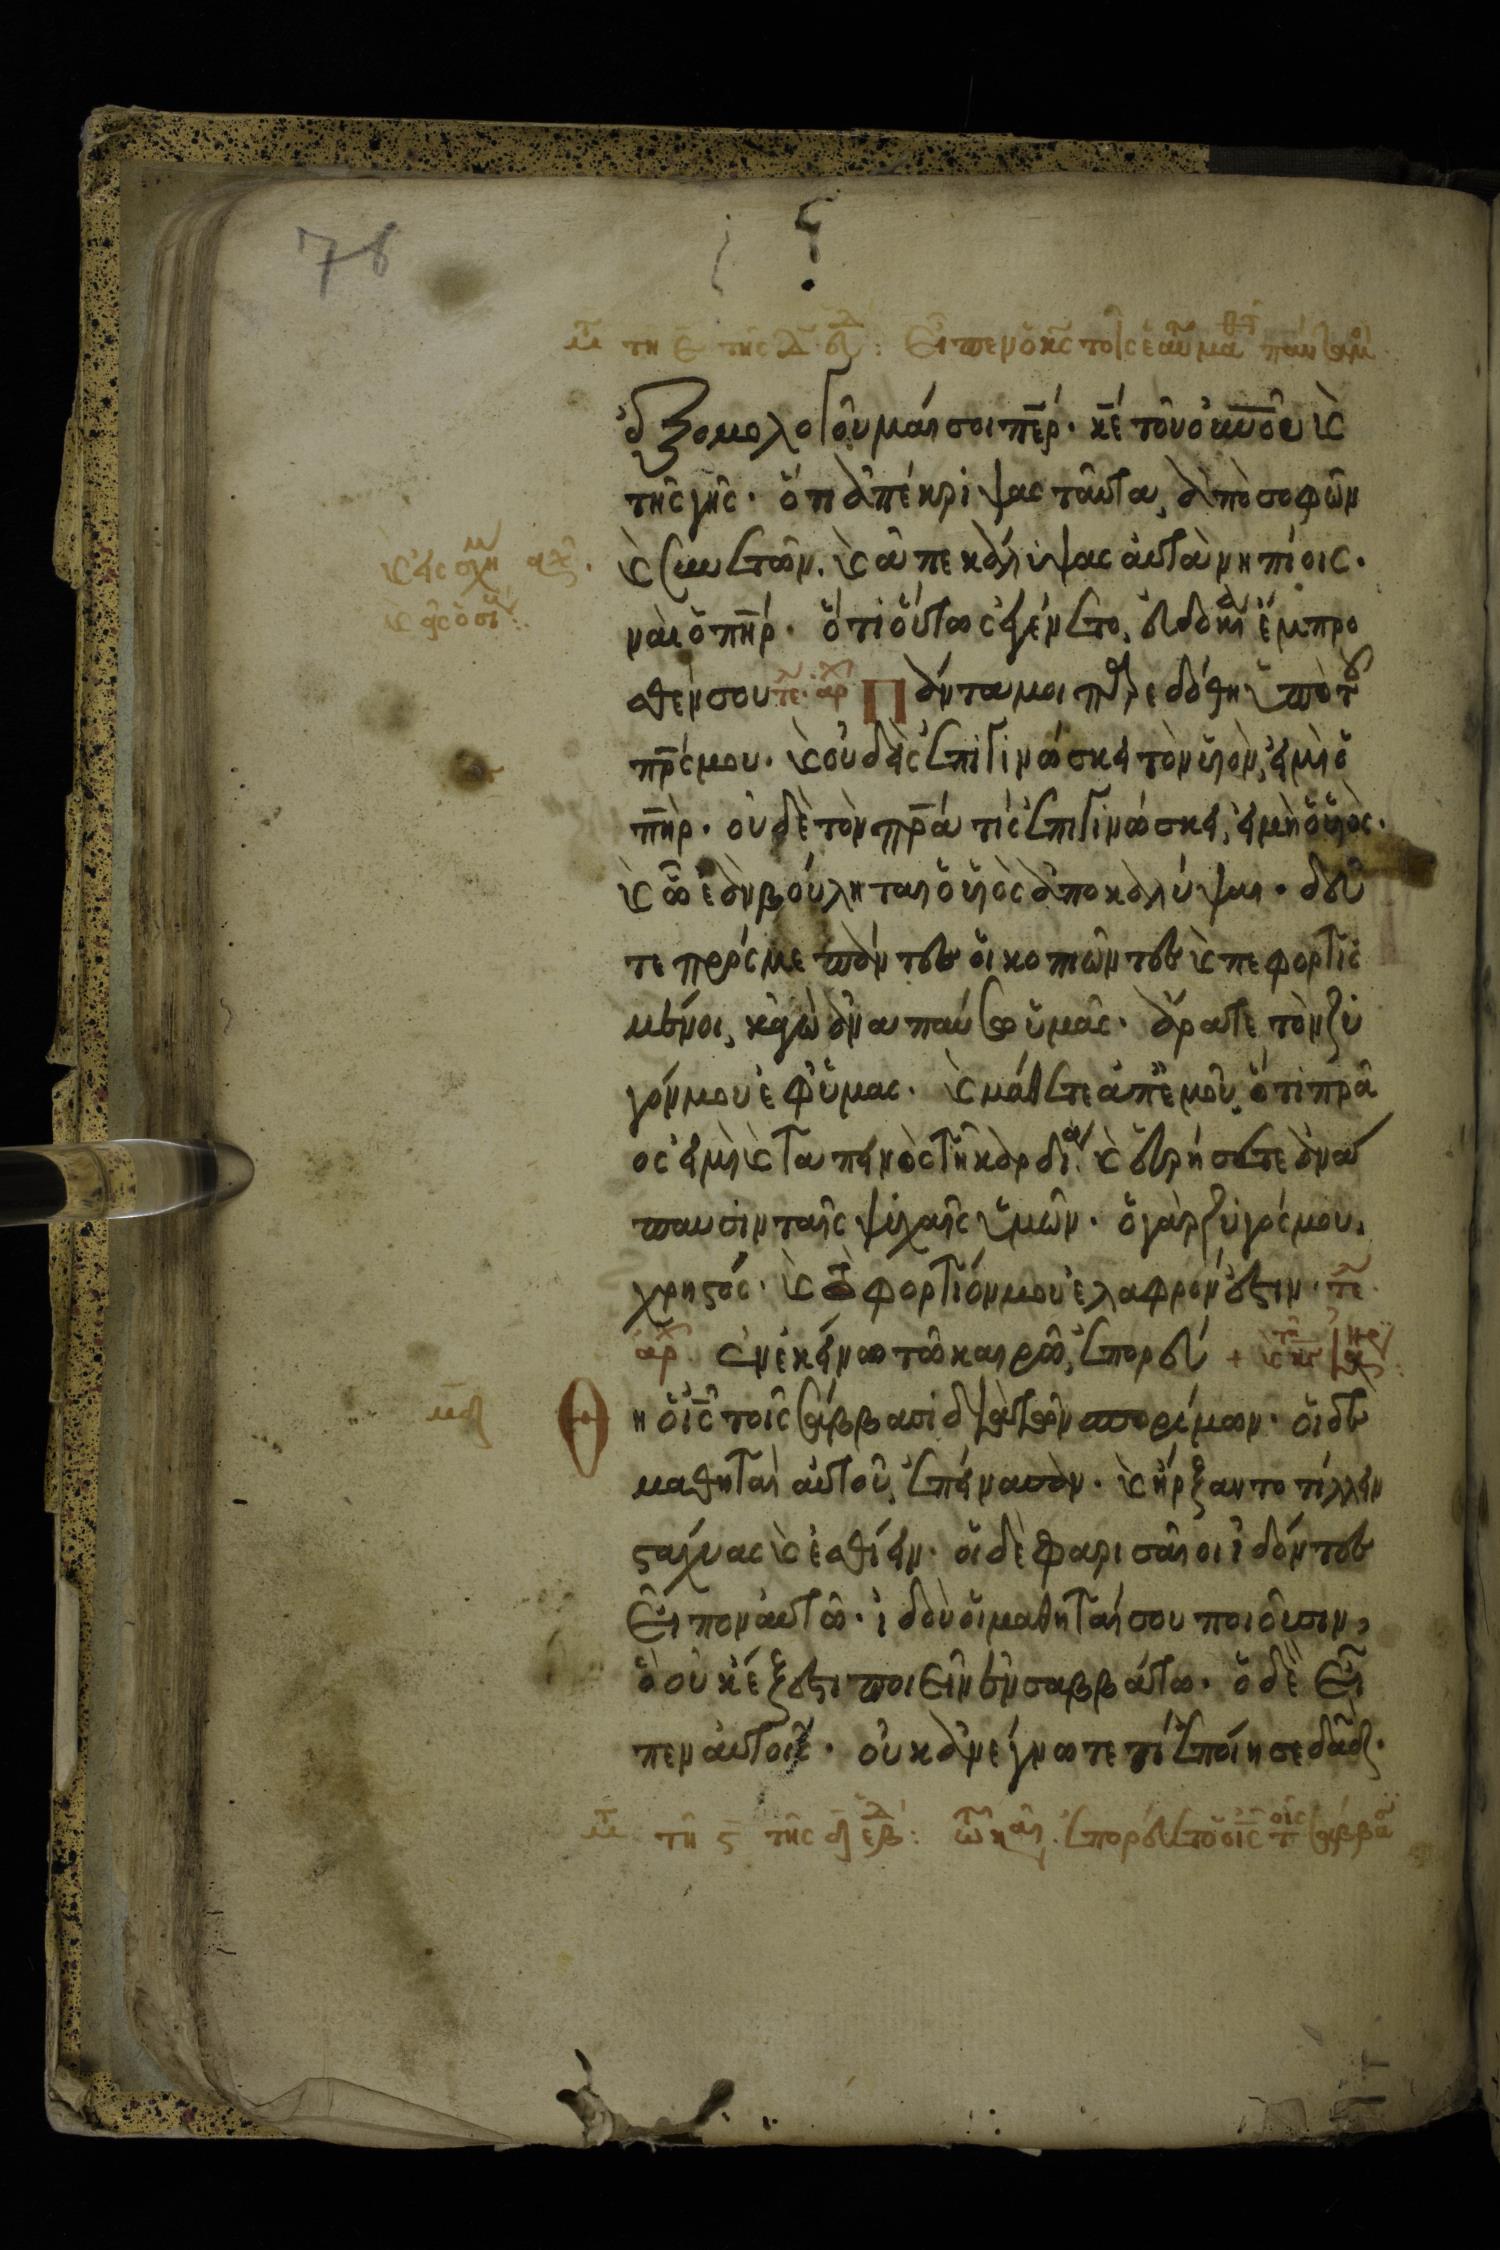 78
τῆ ε τῆς Δ εβδ: Εἶπεν ὁ κς τοῖς ἑαυ μαθτ πάντα μοι
ἐξομολογοῦμαί σοι περ· κε τοῦ οὐνοῦ καὶ
τῆς γῆς· ὅτι ἀπέκρυψας ταῦτα, ἀπὸ σοφῶν
καὶ συνετῶν. καὶ ἀπεκάλυψας αὐτὰ νηπίοις·
ναὶ ὁ πηρ· ὅτι οὕτως ἐγένετο, εὐδοκία ἔμπρο
σθέν σου τε αρχ Πάντα μοι παρεδόθη ὑπὸ τοῦ
πρς μου· καὶ οὐδεὶς ἐπιγινώσκει τὸν υἱὸν, εἰ μὴ ὁ
πηρ· οὐδὲ τὸν πρα τίς ἐπιγινώσκει, εἰ μὴ ὁ υἱὸς·
καὶ ῷ ἐὰν βούληται ὁ υἱὸς ἀποκαλύψαι· δεῦ
τε πρός με πάντες οἱ κοπιῶντες καὶ πεφορτισ
μένοι, κἀγὼ ἀναπαύσω ὑμᾶς· ἄρατε τὸν ζυ
γόν μου ἐφ' ὑμας· καὶ μάθετε ἀπ' ἐμοῦ, ὅτι πρᾶ
ος εἰμὶ καὶ ταπεινὸς τῆ καρδία· καὶ εὑρήσετε ἀνά
παυσιν ταῖς ψυχαῖς ὑμῶν· ὁ γὰρ ζυγός μου,
χρηστός· καὶ τὸ φορτίον μου ἐλαφρόν ἐστιν· τε
αρχ Ἐν ἐκείνω τῶ καιρῶ, ἐπορεύ +
Θη ὁ ις τοῖς σάββασι διὰ τῶν σπορίμων· οἱ δὲ
μαθηταὶ αὐτοῦ, ἐπείνασαν· καὶ ἤρξαντο τίλλειν
στάχυας καὶ ἐσθίειν· οἱ δὲ φαρισαῖοι ἰδόντες
εἶπον αὐτῶ· ἰδοὺ οἱ μαθηταί σου ποιοῦσιν,
ὃ οὐκ ἔξεστι ποιεῖν ἐν σαββάτω· ὁ δὲ εἶ
πεν αὐτοῖς· οὐκ ἀνέγνωτε τί ἐποίησε δαδ·
τῆ ς τῆς εβδ: τῶ καιρ. ἐπορεύετο ὁ ις τοις σάββα